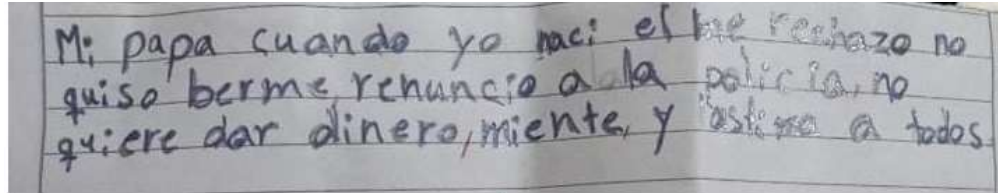 Mi papa cuando yo naci el me rechazo no
quiso berme, renuncio a la policia, no
quiere dar dinero, miente, y lastima a todos